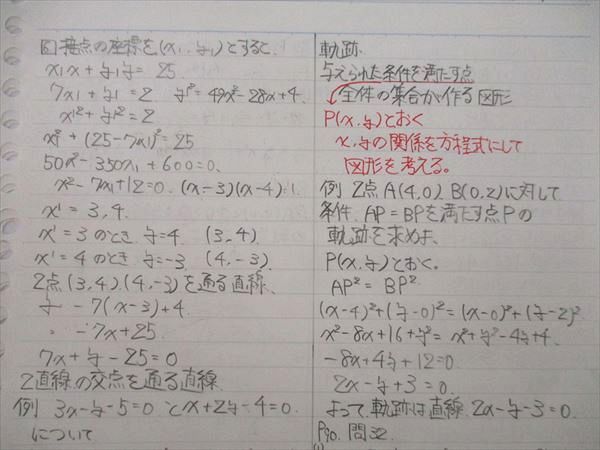 図 接点の座標を(x₁, y₁)とすると、
x₁x + y₁y = 25
7x₁ + y₁ = 2  y² = 49x² - 28x + 4
x₁² + y₁² = 2
x₁² + (25 - 7x₁)² = 25
50x² - 350x₁ + 600 = 0.
x² - 7x₁ + 12 = 0. (x-3)(x-4) =
x' = 3, 4.
x' = 3 のとき y = 4 (3, 4)
x' = 4 のとき y = -3 (4, -3)
2点(3, 4), (4, -3)を通る直線、
y - 7(x-3) + 4
-7x + 25
7x + y - 25 = 0
2直線の交点を通る直線
例 3x - y - 5 = 0 と x + 2y - 4 = 0.
について
軌跡
与えられた条件を満たす点
全体の集合が作る図形
P(x, y)とおく
x, yの関係を方程式にして
図形を考える。
例 2点 A(4, 0), B(0, 2)に対して
条件 AP = BPを満たす点Pの
軌跡を求めよ、
P(x, y)とおく。
AP² = BP²
(x-4)² + (y-0)² = (x-0)² + (y-2)²
x² - 8x + 16 + y² = x² + y² - 4y + 4.
-8x + 4y + 12 = 0.
2x - y + 3 = 0.
よって、軌跡は直線 2x - y - 3 = 0.
P90. 問32.
(1)